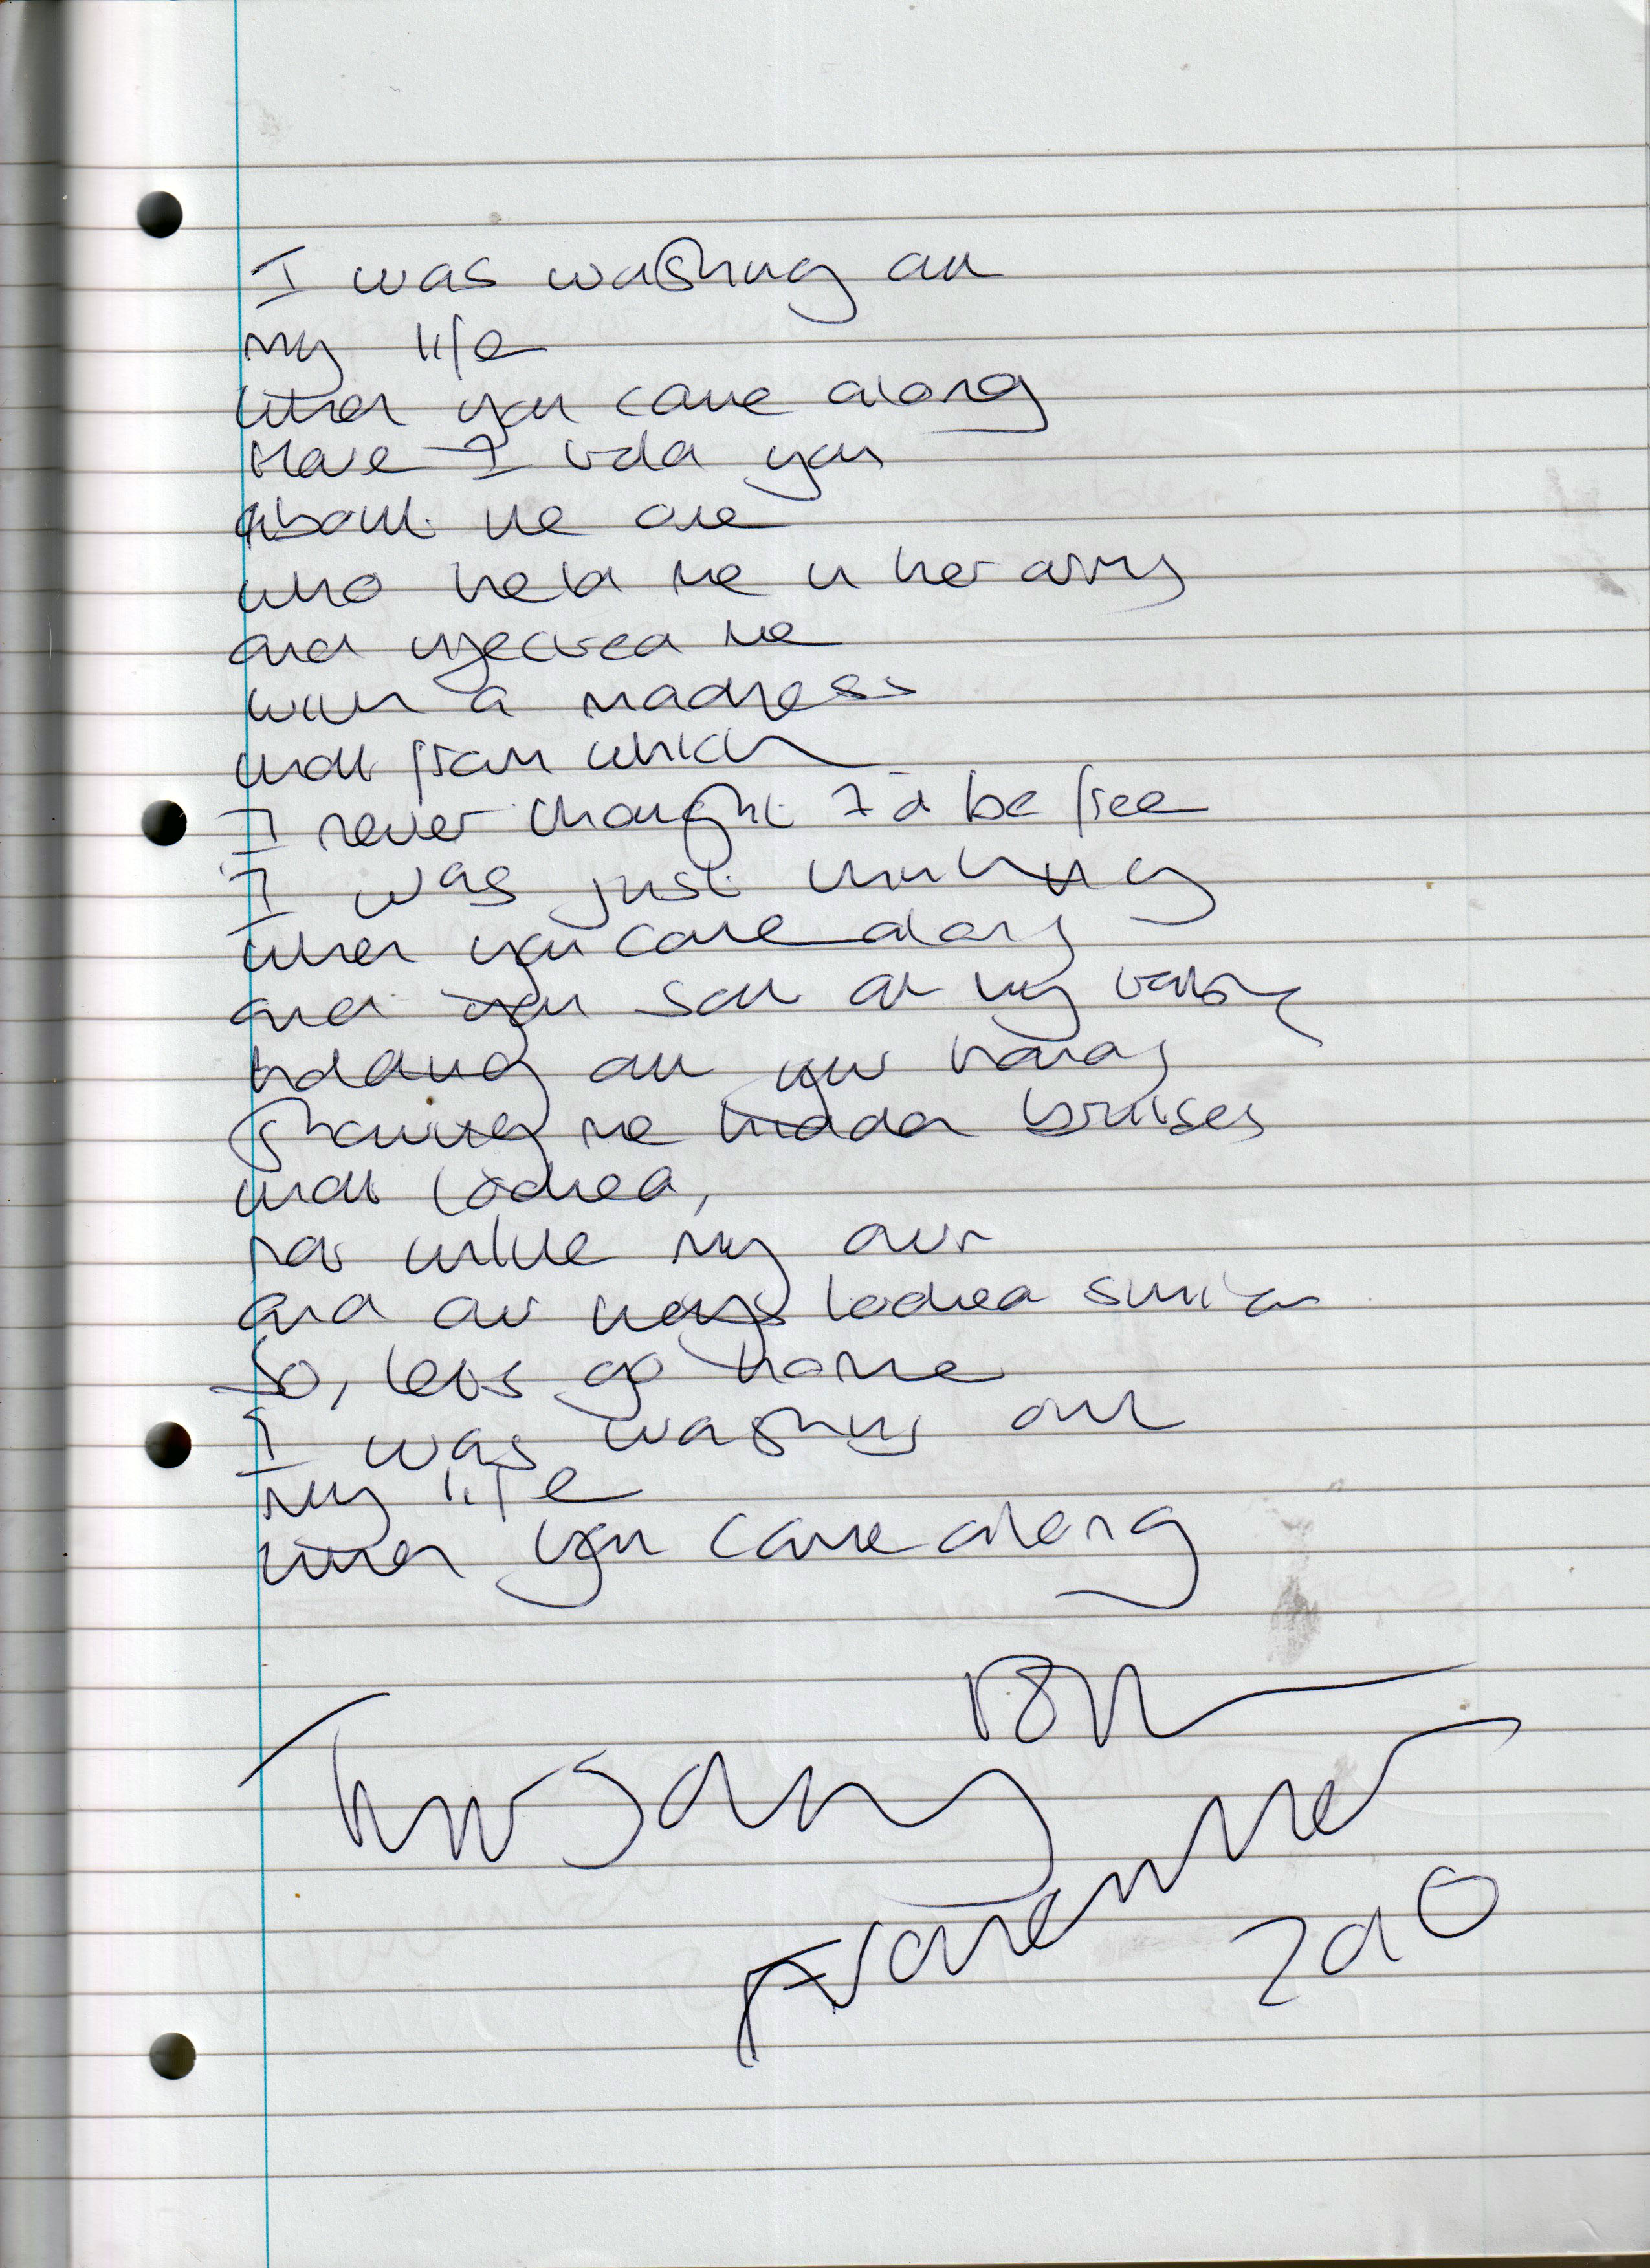 I was washing out
my life
when you came along
Have I told you
about the one
who held me in her arms
and injected me
with a madness
that from which
I never thought I'd be free
I was just thinking
when you came along
and you sat at my table
holding out your hands
showing me hidden bruises
that looked,
not unlike my own
and our ways looked similar
So, lets go home
I was washing out
my life
when you came along
2010